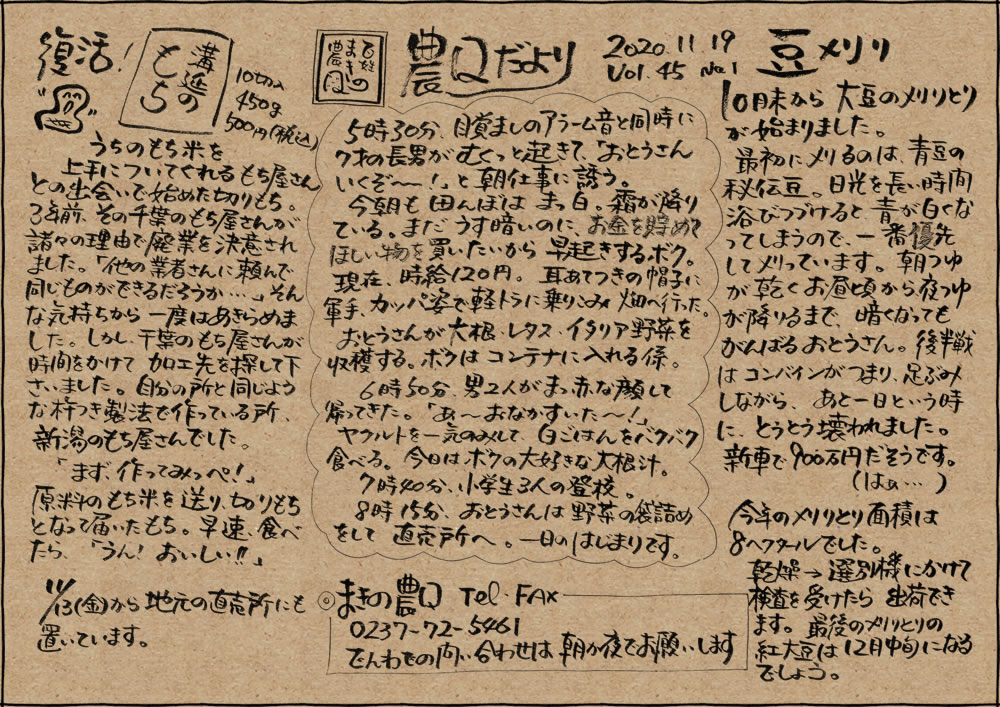 農Qだより
2020.11.19
Vol.45 No.1
百姓
まきの
農Q
復活!
溝延の
もち
10切入
450g
500円(税込)
うちのもち米を
上手についてくれるもち屋さん
との出会いで始めた切りもち。
3年前、その千葉のもち屋さんが
諸々の理由で廃業を決意され
ました。「他の業者さんに頼んで
同じものができるだろうか…」そん
な気持ちから一度はあきらめま
した。しかし、千葉のもち屋さんが
時間をかけて加工先を探して下
さいました。自分の所と同じよう
な杵つき製法で作っている所、
新潟のもち屋さんでした。
「まず、作ってみっぺ!」
原料のもち米を送り、切りもち
となって届いたもち。早速、食べ
たら、「うん!おいしい!!」
11/13(金)から地元の直売所にも
置いています。
5時30分、目覚ましのアラーム音と同時に
7才の長男がむくっと起きて、「おとうさん
いくぞ〜〜!」と朝仕事に誘う。
今朝も田んぼはまっ白。霜が降り
ている。まだうす暗いのに、お金を貯めて
ほしい物を買いたいから早起きするボク。
現在、時給120円。耳あてつきの帽子に
軍手、カッパ姿で軽トラに乗りこみ畑へ行った。
おとうさんが大根・レタス・イタリア野菜を
収穫する。ボクはコンテナに入れる係。
6時50分、男2人がまっ赤な顔して
帰ってきた。「あ〜おなかすいた〜!」
ヤクルトを一気のみして、白ごはんをバクバク
食べる。今日はボクの大好きな大根汁。
7時40分、小学生3人の登校。
8時15分、おとうさんは野菜の袋詰め
をして直売所へ。一日のはじまりです。
まきの農Q Tel・FAX
0237-72-5461
でんわでの問い合わせは朝か夜でお願いします
豆メリリ
10月末から大豆のメリリとり
が始まりました。
最初にメリるのは、青豆の
秘伝豆。日光を長い時間
浴びつづけると青が白くな
ってしまうので、一番優先
してメリっています。朝つゆ
が乾くお昼頃から夜つゆ
が降りるまで、暗くなっても
がんばるおとうさん。後半戦
はコンバインがつまり、足ぶみ
しながら、あと一日という時
に、とうとう壊われました。
新車で900万円だそうです。
(はぁ…)
今年のメリリとり面積は
8ヘクタールでした。
乾燥→選別機にかけて
検査を受けたら出荷でき
ます。最後のメリとりの
紅大豆は12月中旬になる
でしょう。